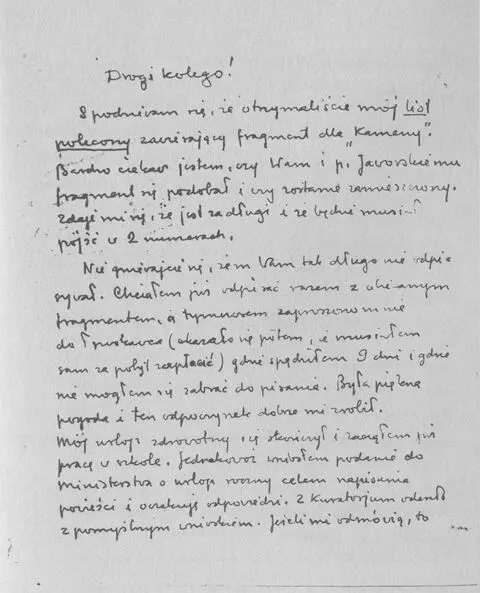 Drogi kolego!
Spodziewam się, że otrzymaliście mój list
polecony zawierający fragment dla "Kameny".
Bardzo ciekaw jestem, czy Wam i p. Jaworskiemu
fragment się podobał i czy zostanie zamieszczony.
Zdaje mi się, że jest za długi i że będzie musiał
pójść w 2 numerach.
Nie gniewajcie się, żem Wam tak długo nie odpi-
sywał. Chciałem już odpisać razem z obiecanym
fragmentem, a tymczasem zaproszono mnie
do Truskawca (okazało się potem, że musiałem
sam za pobyt zapłacić) gdzie spędziłem 9 dni i gdzie
nie mogłem się zabrać do pisania. Była piękna
pogoda i ten odpoczynek dobrze mi zrobił.
Mój urlop zdrowotny się skończył i zacząłem już
pracę w szkole. Jednakowoż wniosłem podanie do
ministerstwa o urlop roczny celem napisania
powieści i oczekuję odpowiedzi. Z Kuratorjum odeszło
z pomyślnym wnioskiem. Jeżeli mi odmówią, to